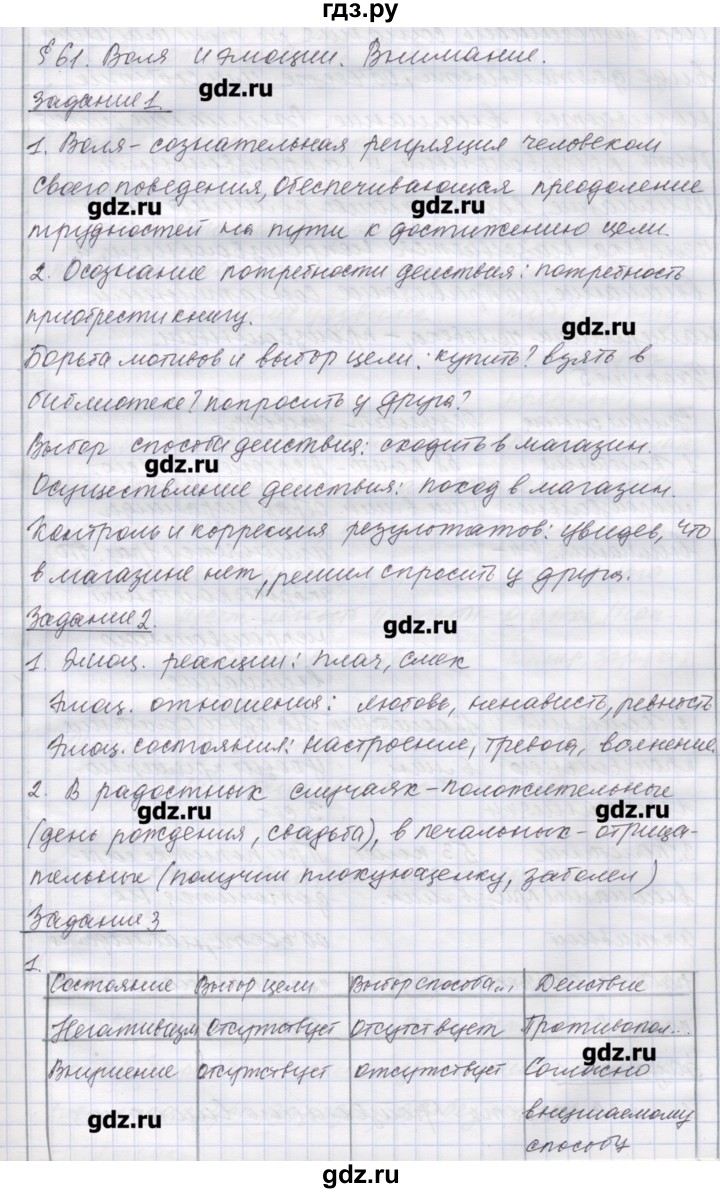 гдз.ру
§ 61. Воля и эмоции. Внимание.
gdz.ru
Задание 1.
1. Воля - сознательная регуляция человеком
своего поведения, обеспечивающая преодоление
gdz.ru gdz.ru
трудностей на пути к достижению цели.
2. Осознание потребности действия: потребность
приобрести книгу.
gdz.ru
Борьба мотивов и выбор цели: купить? взять в
библиотеке? попросить у друга?
Выбор способа действия: сходить в магазин.
gdz.ru
Осуществление действия: поход в магазин.
Контроль и коррекция результатов: увидев, что
в магазине нет, решил спросить у друга.
Задание 2.
gdz.ru
1. Эмоц. реакции: плач, смех
Эмоц. отношения: любовь, ненависть, ревность
Эмоц. состояния: настроение, тревога, волнение.
2. В радостных случаях - положительные
gdz.ru gdz.ru
(день рождения, свадьба), в печальных - отрица-
тельные (получил плохую оценку, заболел)
Задание 3
1.
Состояние Выбор цели Выбор способа... Действие
Негативизм Отсутствует Отсутствует Противопол...
gdz.ru
Внушение отсутствует отсутствует Согласно
внушаемому
gdz.ru
способу
gdz.ru